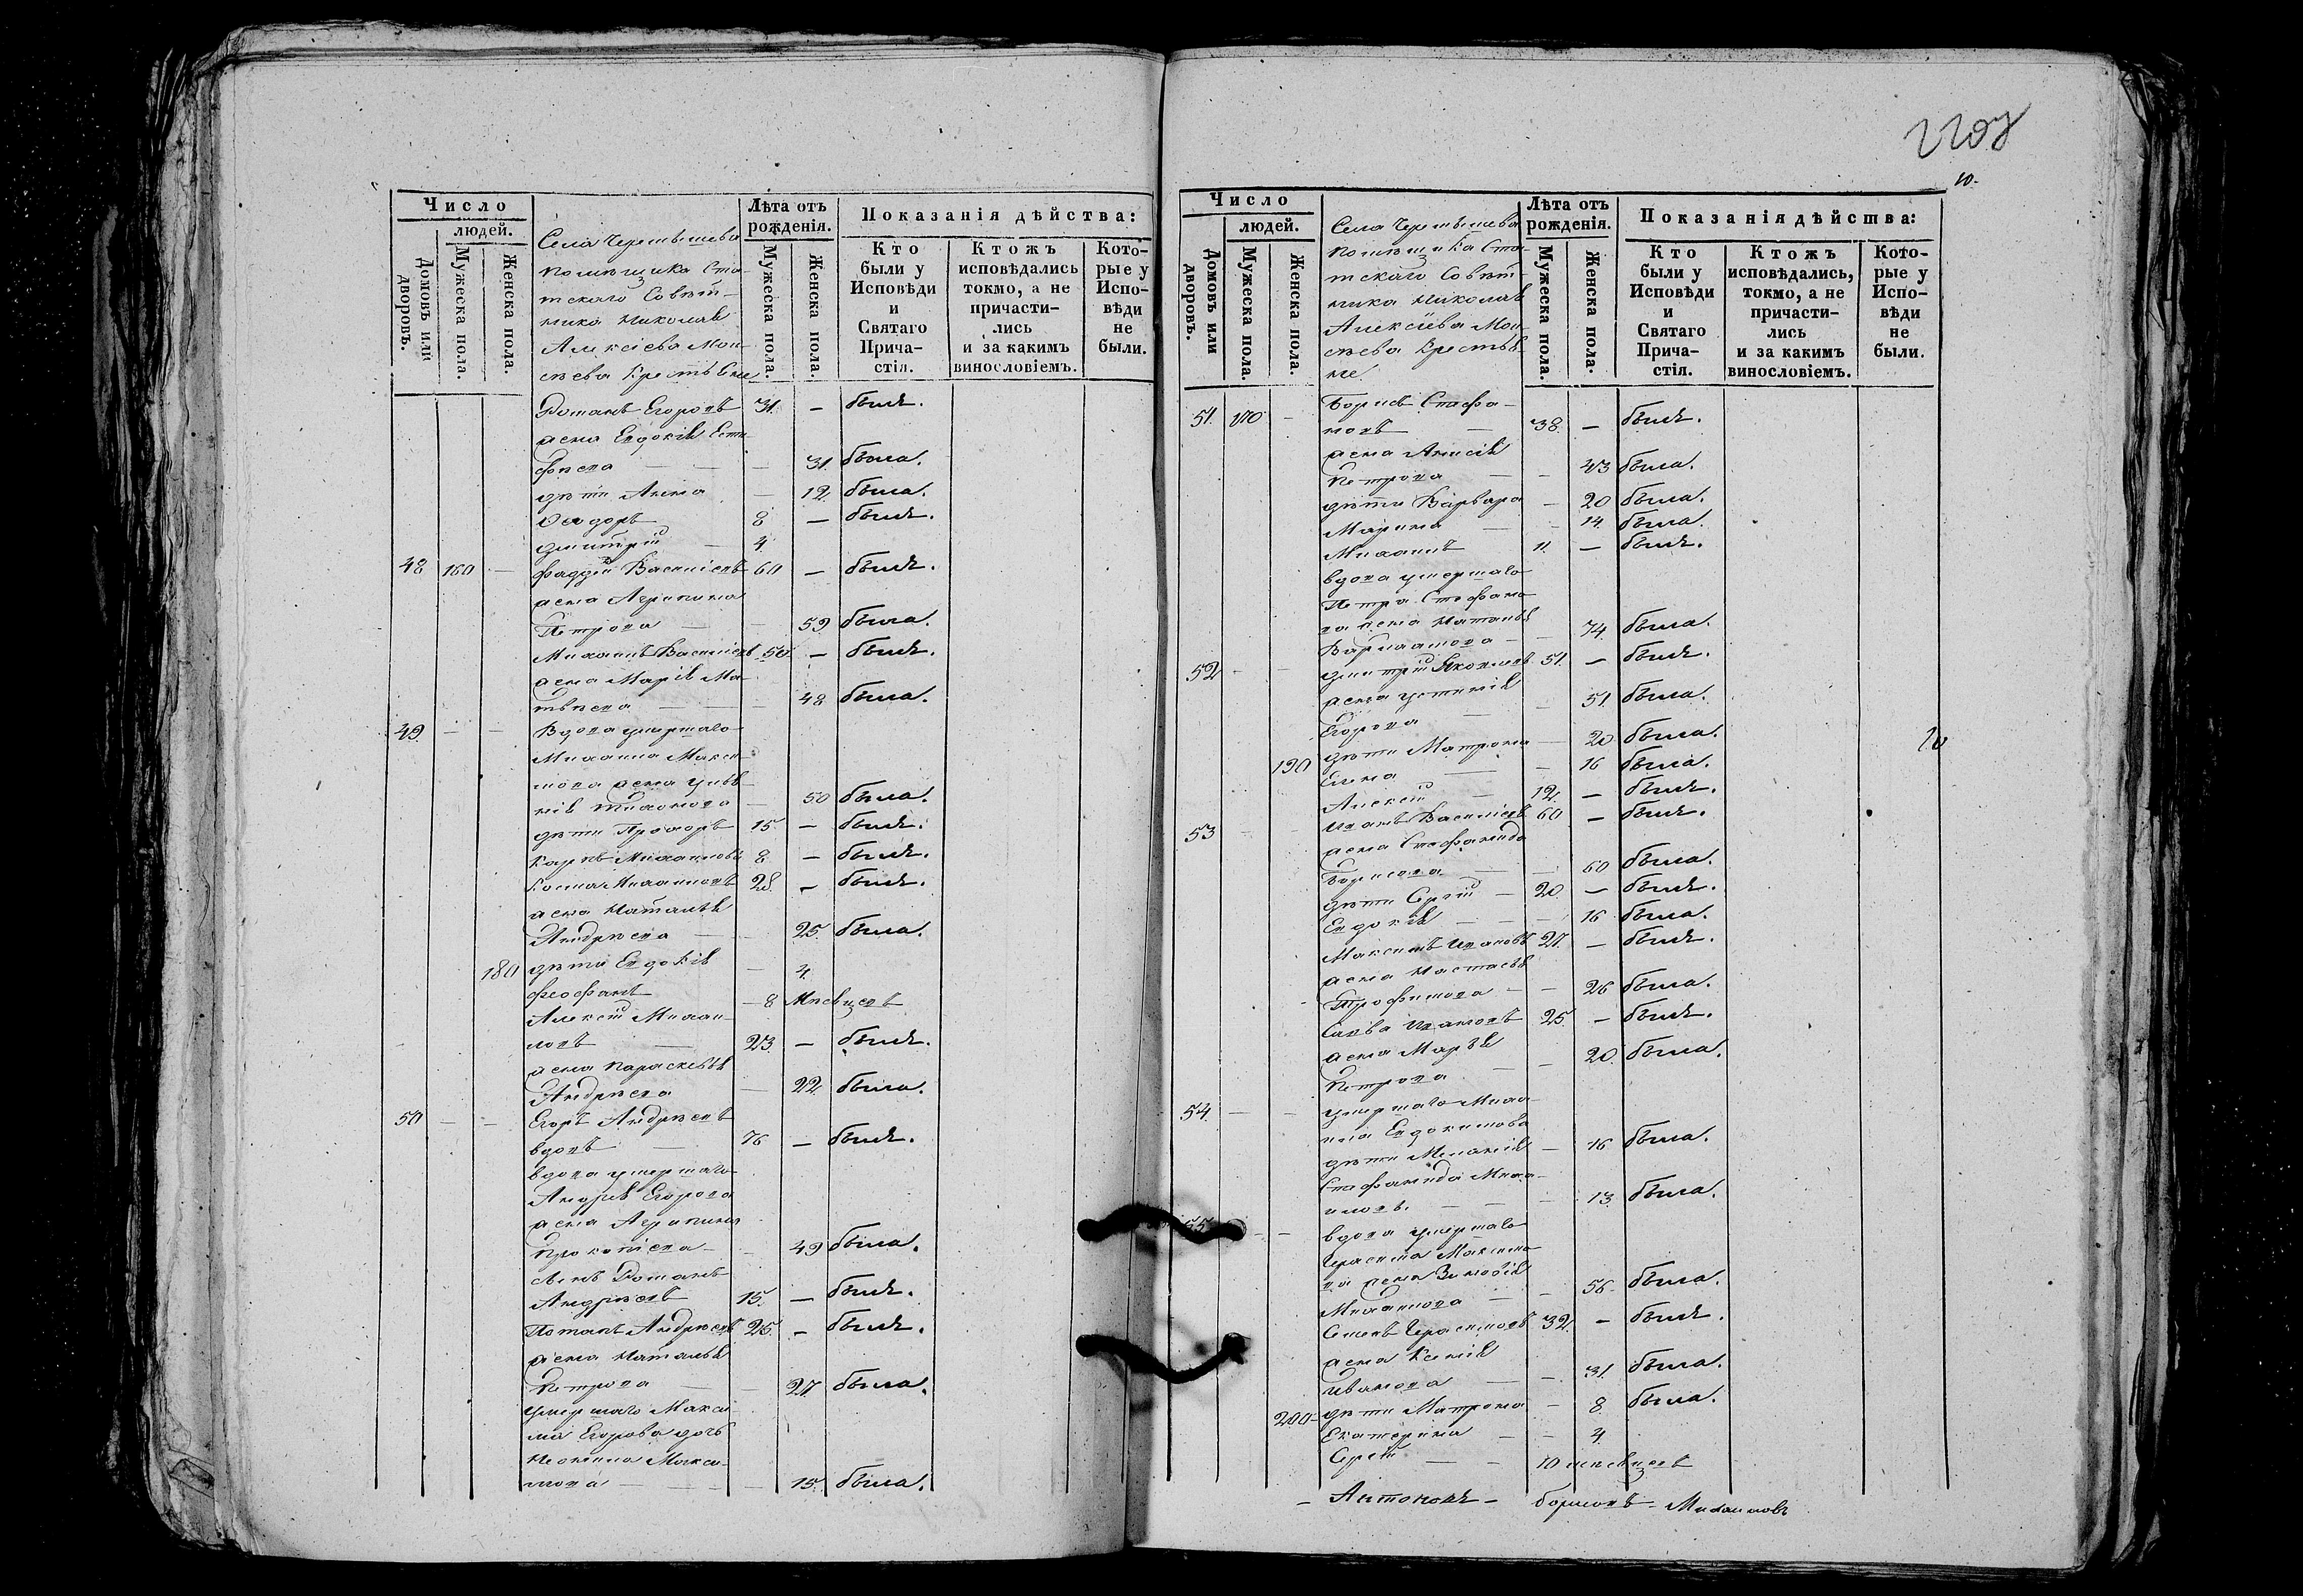 Число
людей.
Домовъ или дворовъ.
Мужеска пола.
Женска пола.
Села Черемышева
помѣщика Ста-
тскаго Совѣт-
ника Николая
Алексіева Мои-
сѣева Крестьяне
Лѣта отъ
рожденія.
Мужеска пола.
Женска пола.
Показанія дѣйства:
Кто были у Исповѣди и Святаго Прича-стія.
Ктожъ исповѣдались токмо, а не причасти-лись и за какимъ винословіемъ.
Кото-рые у Испо-вѣди не были.
Романъ Егоровъ 31. — былъ.
жена Евдокія Ести-
фѣева — — — 31. была.
дѣти Анна — 12. была.
Ѳеодоръ 8 — былъ.
Димитрій — 4.
48 160 — Фаддей Василіевъ 60 — былъ.
жена Агрипина
Петрова — — 59 была.
Михаилъ Василіевъ 50 — былъ.
жена Марія Ма-
твѣева — — 48 была.
49. — — Вдова умершаго
Михаила Макси-
мова жена Улья-
нія Тихонова — 50 была.
дѣти Прохоръ 15. — былъ.
Карпъ Михаиловъ 8 — былъ.
Косма Михаиловъ 28. — былъ.
жена Наталья
Андрѣева — — 25. была.
180 дѣти Евдокія — 4.
Феофанъ — 8 Мѣсяцевъ
Алексій Михаи-
ловъ — 23. — былъ.
жена Параскевья
Андрѣева — 22. была.
50 — — Егоръ Андрѣевъ
вдовъ — 76 — былъ.
вдова умершаго
Андрея Егорова
жена Агрипина
Прокопіева — — 49 была.
сынъ Романъ
Андрѣевъ 15. — былъ.
Потапъ Андрѣевъ 25. — былъ.
жена Наталья
Петрова — — 27. была.
умершаго Макси-
ма Егорова дочь
Неонила Макси-
мова — — — 15. была.
10.
Число
людей.
Домовъ или дворовъ.
Мужеска пола.
Женска пола.
Села Черемышева
помѣщика Ста-
тскаго Совѣт-
ника Николая
Алексіева Мои-
сѣева Крестья-
не
Лѣта отъ
рожденія.
Мужеска пола.
Женска пола.
Показанія дѣйства:
Кто были у Исповѣди и Святаго Прича-стія.
Ктожъ исповѣдались, токмо, а не причасти-лись и за какимъ винословіемъ.
Кото-рые у Испо-вѣди не были.
51. 170 — Борисъ Стефа-
новъ — 38. — былъ.
жена Анисія
Петрова — — 43 была.
дѣти Варвара — 20 была.
Марина — — 14. была.
Михаилъ 11. — былъ.
вдова умершаго
Петра Стефано-
ва жена Наталья
Варлаамова — — 74. была.
52 — — Димитрій Яковлевъ 51. — былъ.
жена Устинія
Егорова — — 51. была.
дѣти Матрона — 20 была.
190 Елена — — 16 была.
Алексій — 12. — былъ.
53 — — Иванъ Василіевъ 60 — былъ.
жена Стефанида
Борисова — — 60 была.
дѣти Сергій — 20. — былъ.
Евдокія — — — 16 была.
Максимъ Ивановъ 27. — былъ.
жена Настасья
Трофимова — — 26 была.
Савва Ивановъ 25. — былъ.
жена Марья
Петрова — 20. была.
54. — — умершаго Миха-
ила Евдокимова
дѣти Меланія — 16 была.
Стефанида Миха-
илов. — — — 13. была.
55. — — вдова умершаго
Герасима Максимо-
ва жена Зиновія
Михаилова — — 56. была.
Семенъ Герасимовъ 32. — былъ.
жена Ксенія
Иванова — — 31. была.
200 — дѣти Матрона — 8. была.
Екатерина — — 4.
Сергій — — 10 мѣсяцевъ
— Антоновъ — Борисовъ — Михаиловъ